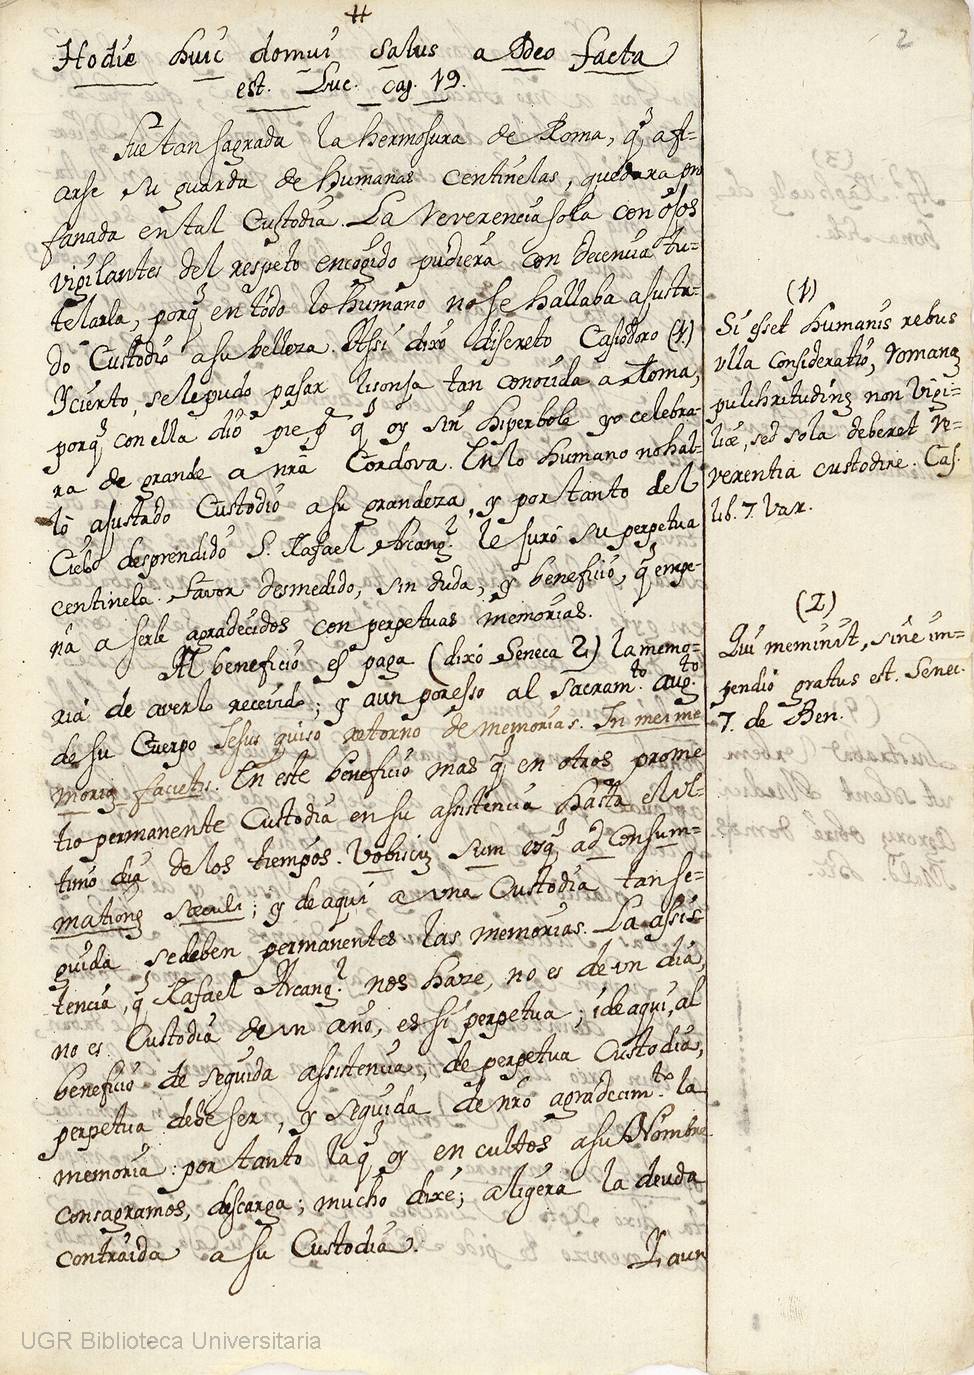 2
Hodie huic domui salus a Deo facta
est. Luc. cap. 19.
Fue tan sagrada la hermosura de Roma, q̃, a fi-
arse su guarda de humanas centinelas, quedara pro
fanada en tal Custodia. La reverencia sola con ojos
vigilantes del respeto encogido pudiera con decencia tu-
telarla, porq̃ en todo lo humano no se hallaba ajusta-
do Custodio a su belleza. Assi dixo discreto Casiodoro (1)
Y cierto, se le pudo pasar lisonja tan conocida a Roma,
porq̃ con ella dio pie, q̃ oy sin hiperbole yo celebra-
ra de grande a nrã Cordova. En lo humano no hal-
lò ajustado Custodio a su grandeza, y por tanto del
Cielo desprendido S. Rafael Arcang.l le juró su perpetua
centinela. Favor desmedido, sin duda, y beneficio, q̃ empe-
ña a serle agradecidos con perpetuas memorias.
Al beneficio es paga (dixo Seneca 2) la memo-
ria de averlo recevido; y aun por esso al Sacram.to Aug.to
de su Cuerpo Jesus quiso retorno de memorias. In mei me
moriã facietis. En este beneficio mas q̃ en otros prome
tio permanente Custodia en su assistencia hasta el ul-
timo dia de los tiempos. Vobiscũ sum usq̃ ad consum-
mationẽ sæculi; y de aqui a una Custodia tan se-
guida se deben permanentes las memorias. La asis-
tencia, q̃ Rafael Arcang.l nos haze, no es de un dia,
no es Custodia de un año, es sí perpetua; i de aqui, al
beneficio de seguida assistencia, de perpetua Custodia,
perpetua debe ser, y seguida de nrõ agradecim.to la
memoria: por tanto la q̃ oy en cultos a su Nombre
consagramos, descarga; mucho dixe; aligera la deuda
contraida a su Custodia.
Y aun
(1)
Si esset humanis rebus
ulla consideratio, romanã
pulchritudinẽ non vigi-
liæ, sed sola deberet re-
verentia custodire. Cas.
lib. 7. Var.
(2)
Qui meminit, sine im-
pendio gratus est. Senec.
7. de Ben.
UGR Biblioteca Universitaria